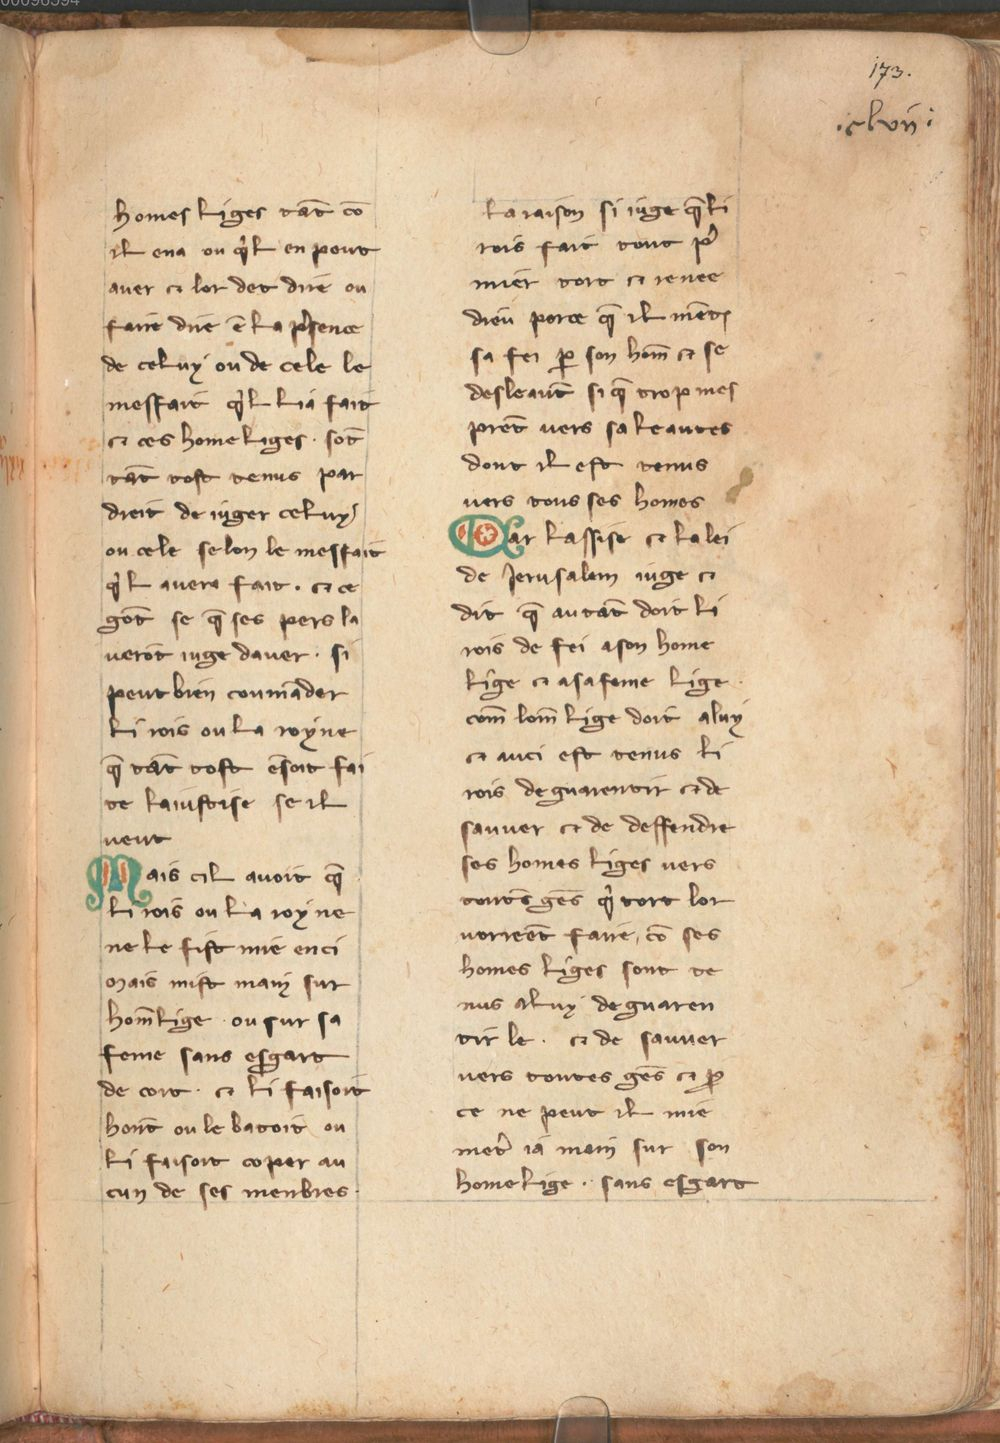 173.
.clvii.
homes liges tāt cō
il ena ou q̉l en pout
auer ⁊ lor det dire ou
faire dire ē la p̉sence
de celuy ou de cele le
meffait q̉l li a fait
⁊ ces home liges · sōt
tāt tost tenus par
dreit de iuger celuy
ou cele selon le mesfait
q̉l auera fait · ⁊ ce
gōt se q̄ ses pers la
uerōt iuge dauer · si
peut bien coumāder
li rois ou la royne
q̄ tāt tost ēsoit fai
te la iustise se il
veut
Mais cil auoit q̄
li rois ou la royne
ne le fist mie enci
mais mist main sur
hom̄ lige · ou sur sa
feme sans esgart
de cort · ⁊ li faisoit
hont̄ ou le batoit ou
li faisoit coper au
cun de ses menbres ·
la raison si iuge q̄ li
rois fait tout p̉
mier tort ⁊ renee
dieu porce q̄ il ment̄
sa fei ꝑ son hom̄ ⁊ se
desleaut̄ si q̄ trop mes
prēt uers sa leautes
dont il est tenus
uers tous ses homes
Car lassise ⁊ la lei
de Jerusalem iuge ⁊
dit q̄ autāt doit li
rois de fei a son home
lige ⁊ a sa feme lige ·
com̄ lom̄ lige doit a luy
⁊ auci est tenus li
rois de guarentir ⁊ de
sauuer ⁊ de deffendre
ses homes liges uers
toutēs gēs q̉ tort lor
uorreēt faire, cō ses
homes liges sont te
nus a luy de guaren
tir le · ⁊ de sauuer
uers toutes gēs ⁊ ꝑ
ce ne peut il mie
met̉ ia main sur son
home lige · sans esgart